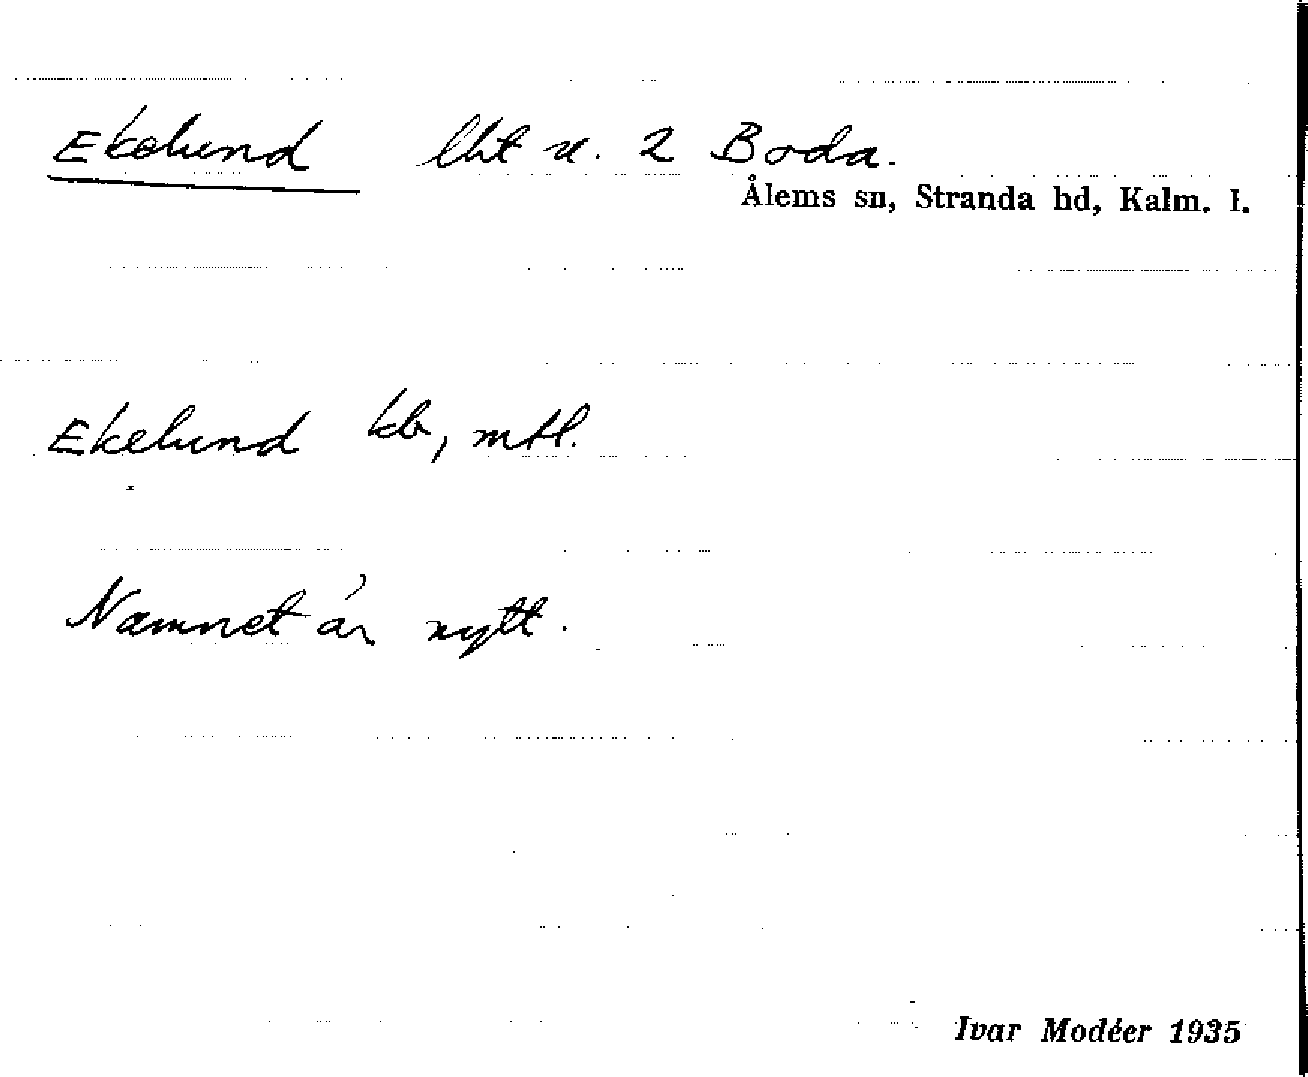 Ekelund lht u. 2 Boda.
Ålems sn, Stranda hd, Kalm. l.
Ekelund kb, mtl.
Namnet är nytt.
Ivar Modéer 1935